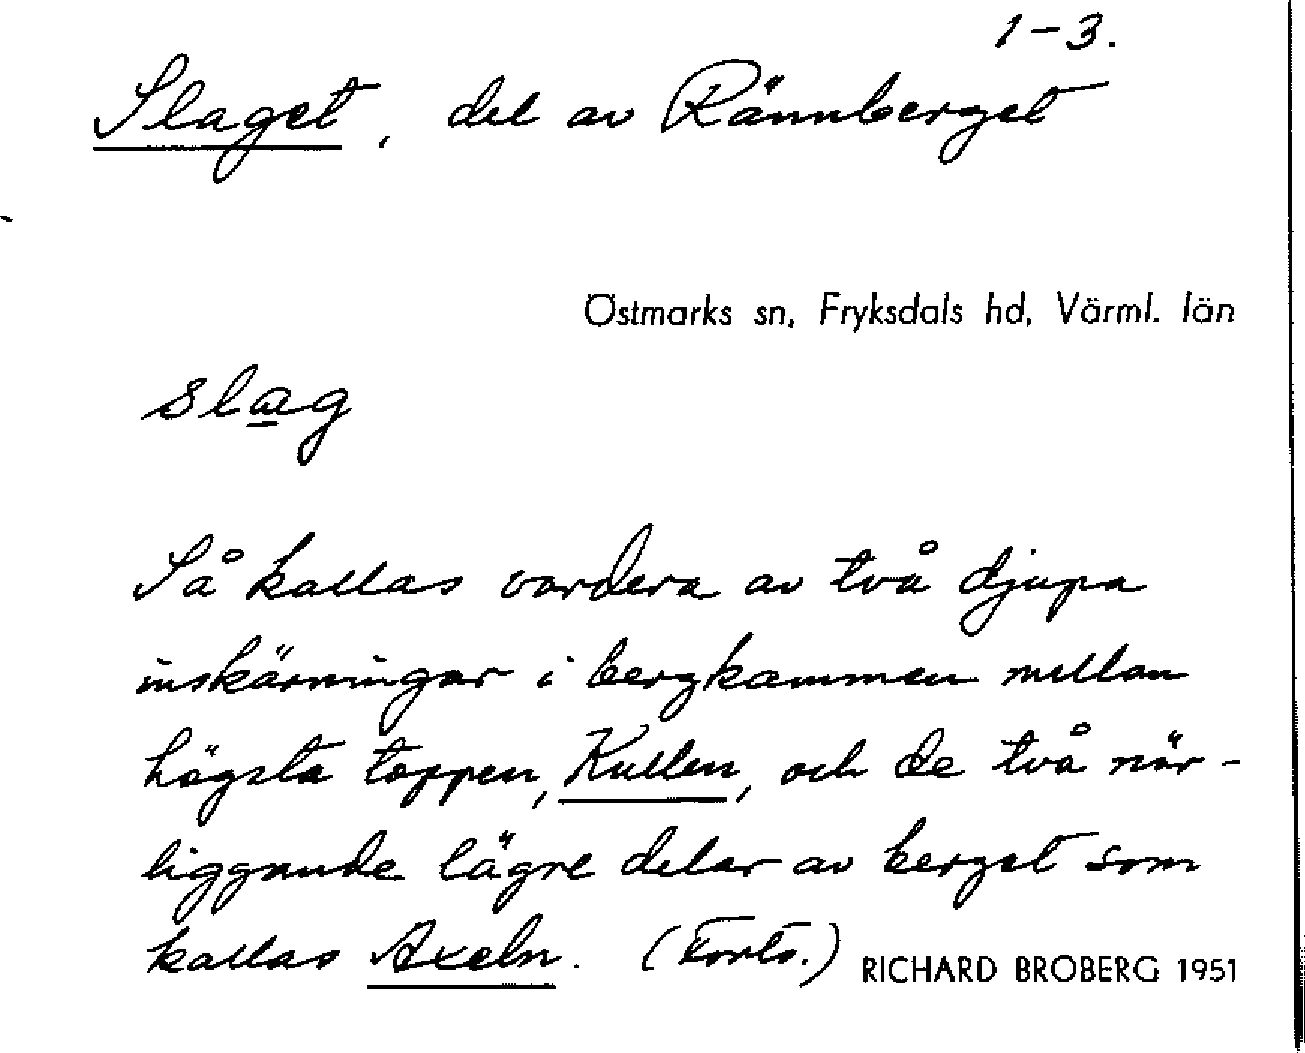 1-3.
Slaget, del av Rännberget
Östmarks sn, Fryksdals hd, Värml. län
slag
Så kallas vardera av två djupa
inskärningar i bergkammen mellan
högsta toppen, Kullen, och de två när-
liggande lägre delar av berget som
kallas Axeln. (Forts.)
RICHARD BROBERG 1951